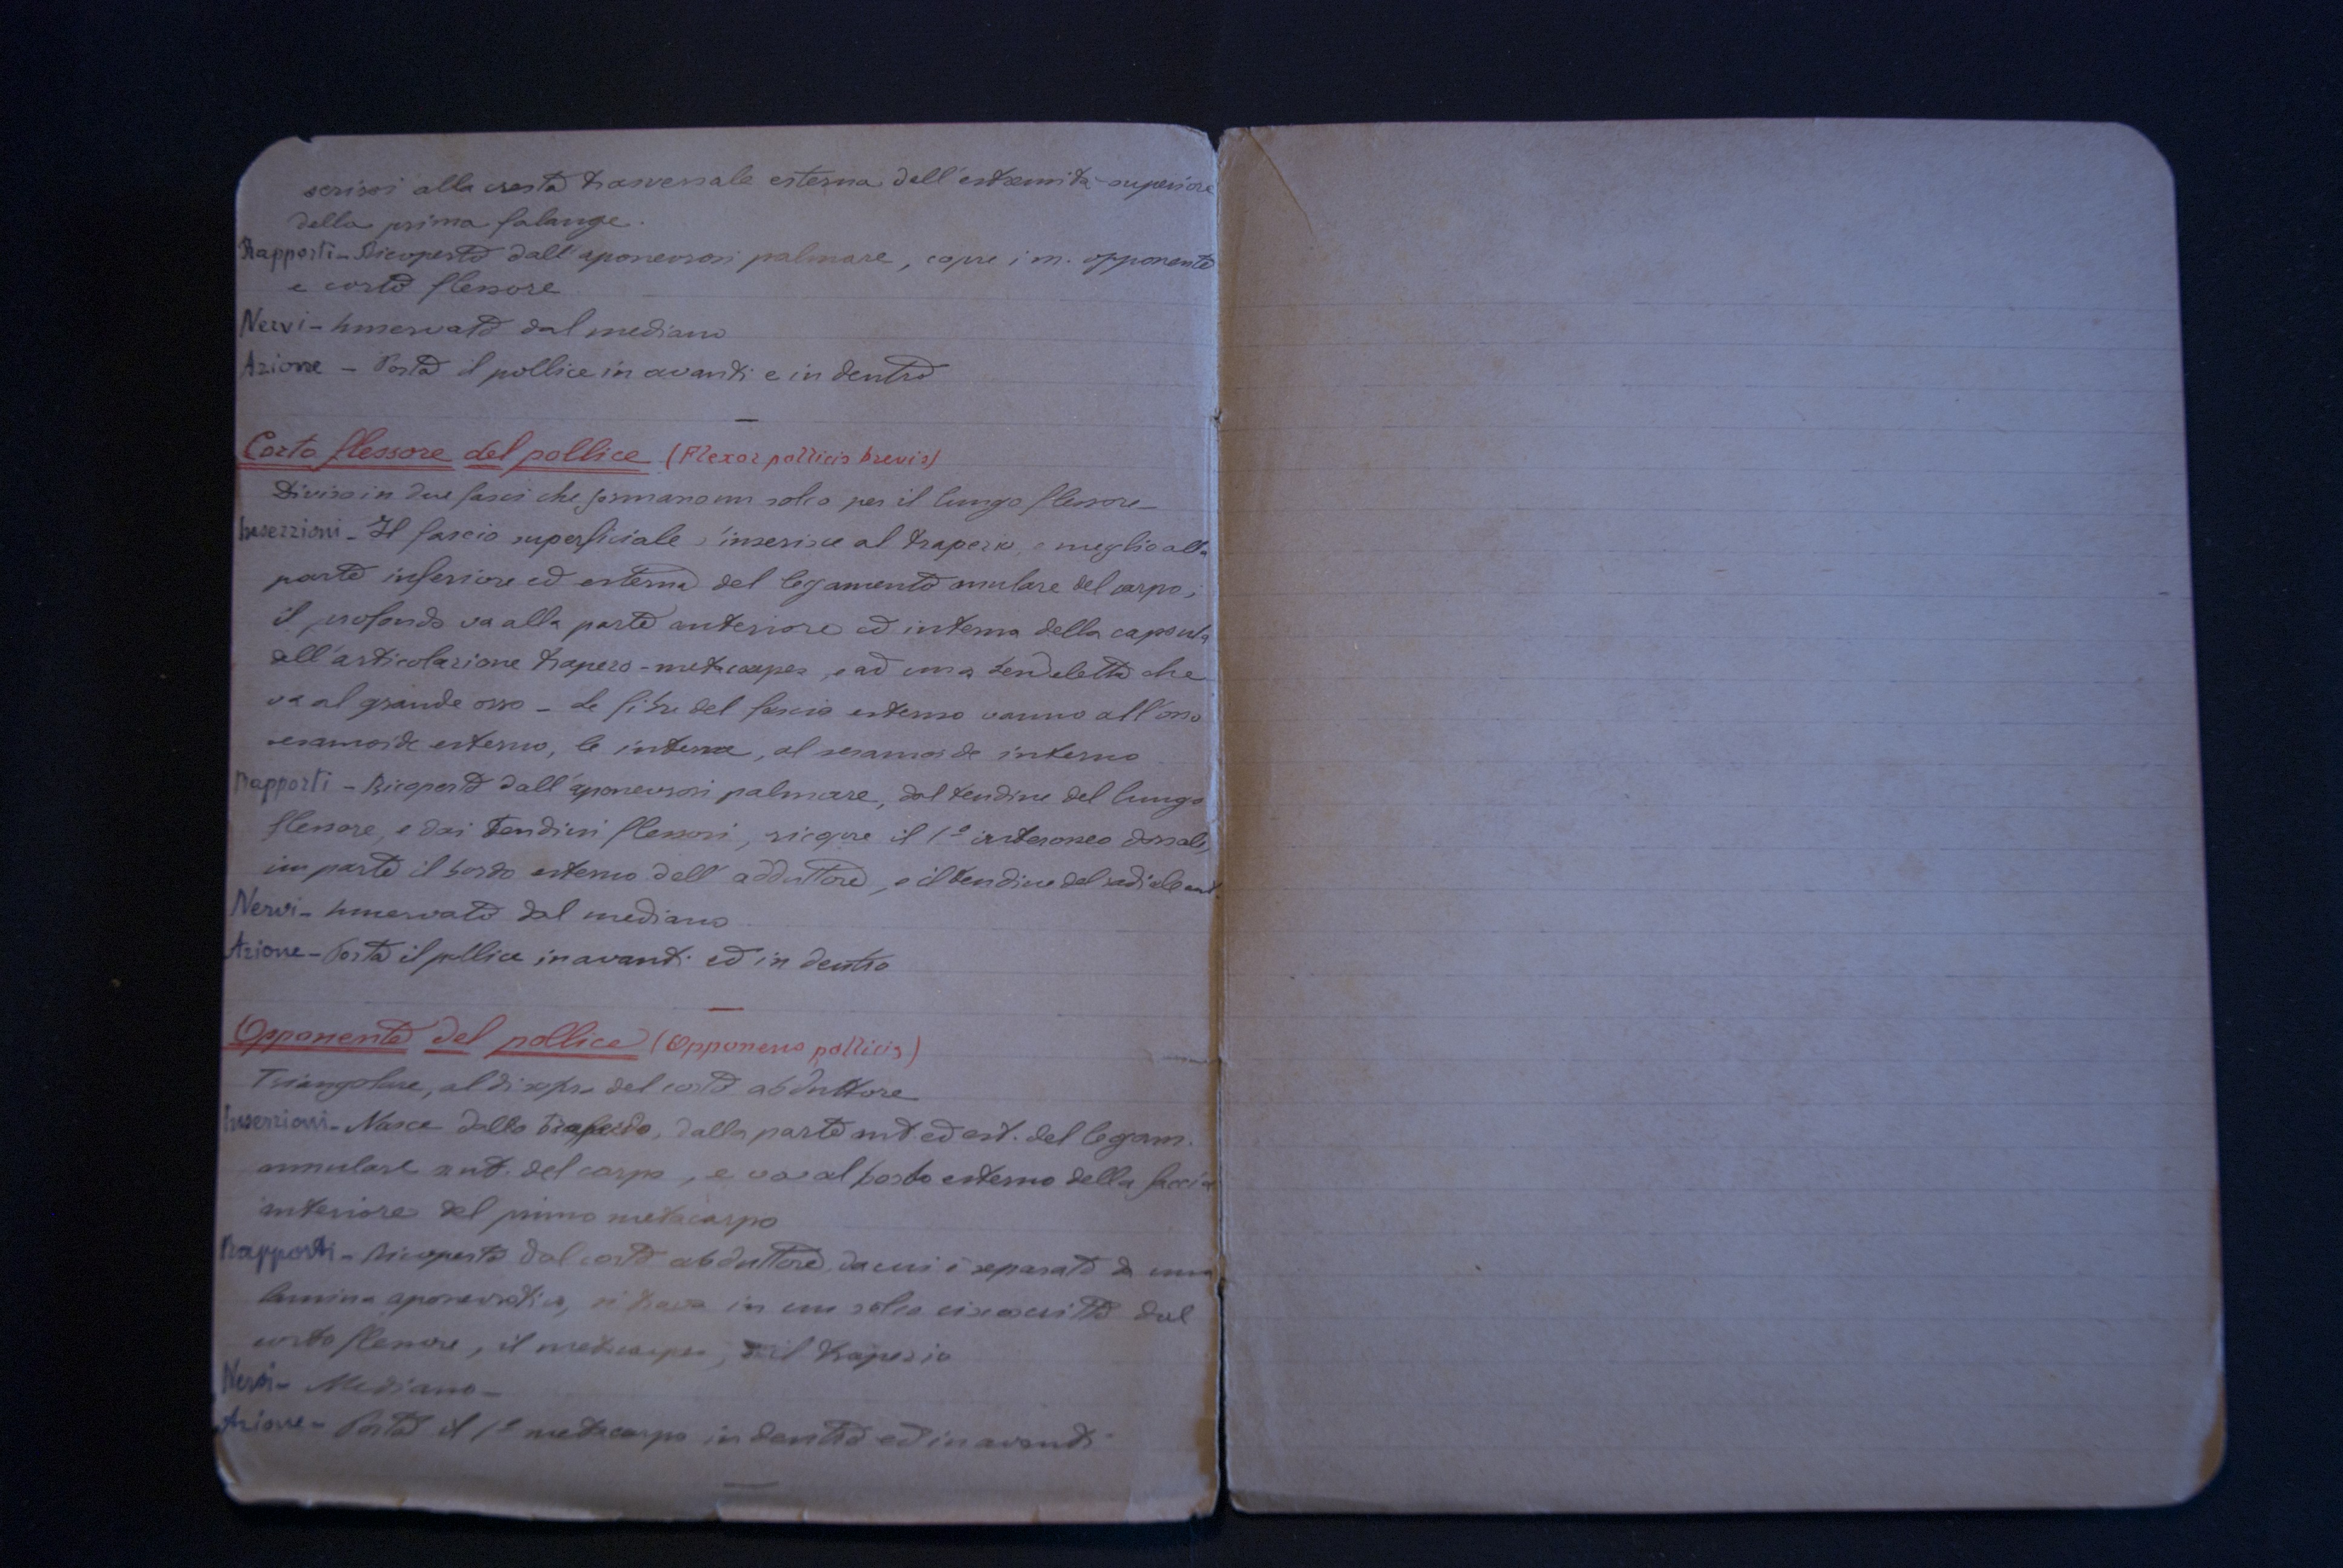 serirsi alla cresta trasversale esterna dell'estremità superiore
della prima falange.
Rapporti - Ricoperto dall'aponevrosi palmare, copre i m. opponente
e corto flessore
Nervi - Innervato dal mediano
Azione - Porta il pollice in avanti e in dentro
Corto flessore del pollice (Flexor pollicis brevis)
Diviso in due fasci che formano un solco per il lungo flessore -
Inserzioni - Il fascio superficiale s'inserisce al trapezio, e meglio alla
parte inferiore ed esterna del legamento anulare del carpo;
il profondo va alla parte anteriore ed interna della capsula
dell'articolazione trapezo-metacarpea, e ad una bendeletta che
va al grande osso - Le fibre del fascio esterno vanno all'osso
sesamoide esterno, le interne, al sesamoide interno
Rapporti - Ricoperto dall'aponevrosi palmare, dal tendine del lungo
flessore, e dai tendini flessori, ricopre il 1º interosseo dorsale,
in parte il bordo esterno dell'adduttore, e il tendine del radiale ant.
Nervi - Innervato dal mediano
Azione - Porta il pollice in avanti ed in dentro
Opponente del pollice (Opponens pollicis)
Triangolare, al disopra del corto abduttore
Inserzioni - Nasce dallo, dalla parte ant. ed est. del legam.
annulare ant. del carpo, e va al bordo esterno della faccia
anteriore del primo metacarpo
Rapporti - Ricoperto dal corto abduttore, da cui è separato da una
lamina aponevrotica, si trova in un solco circoscritto dal
corto flessore, il metacarpo, e il trapezio
Nervi - Mediano -
Azione - Porta il 1º metacarpo in dentro ed in avanti